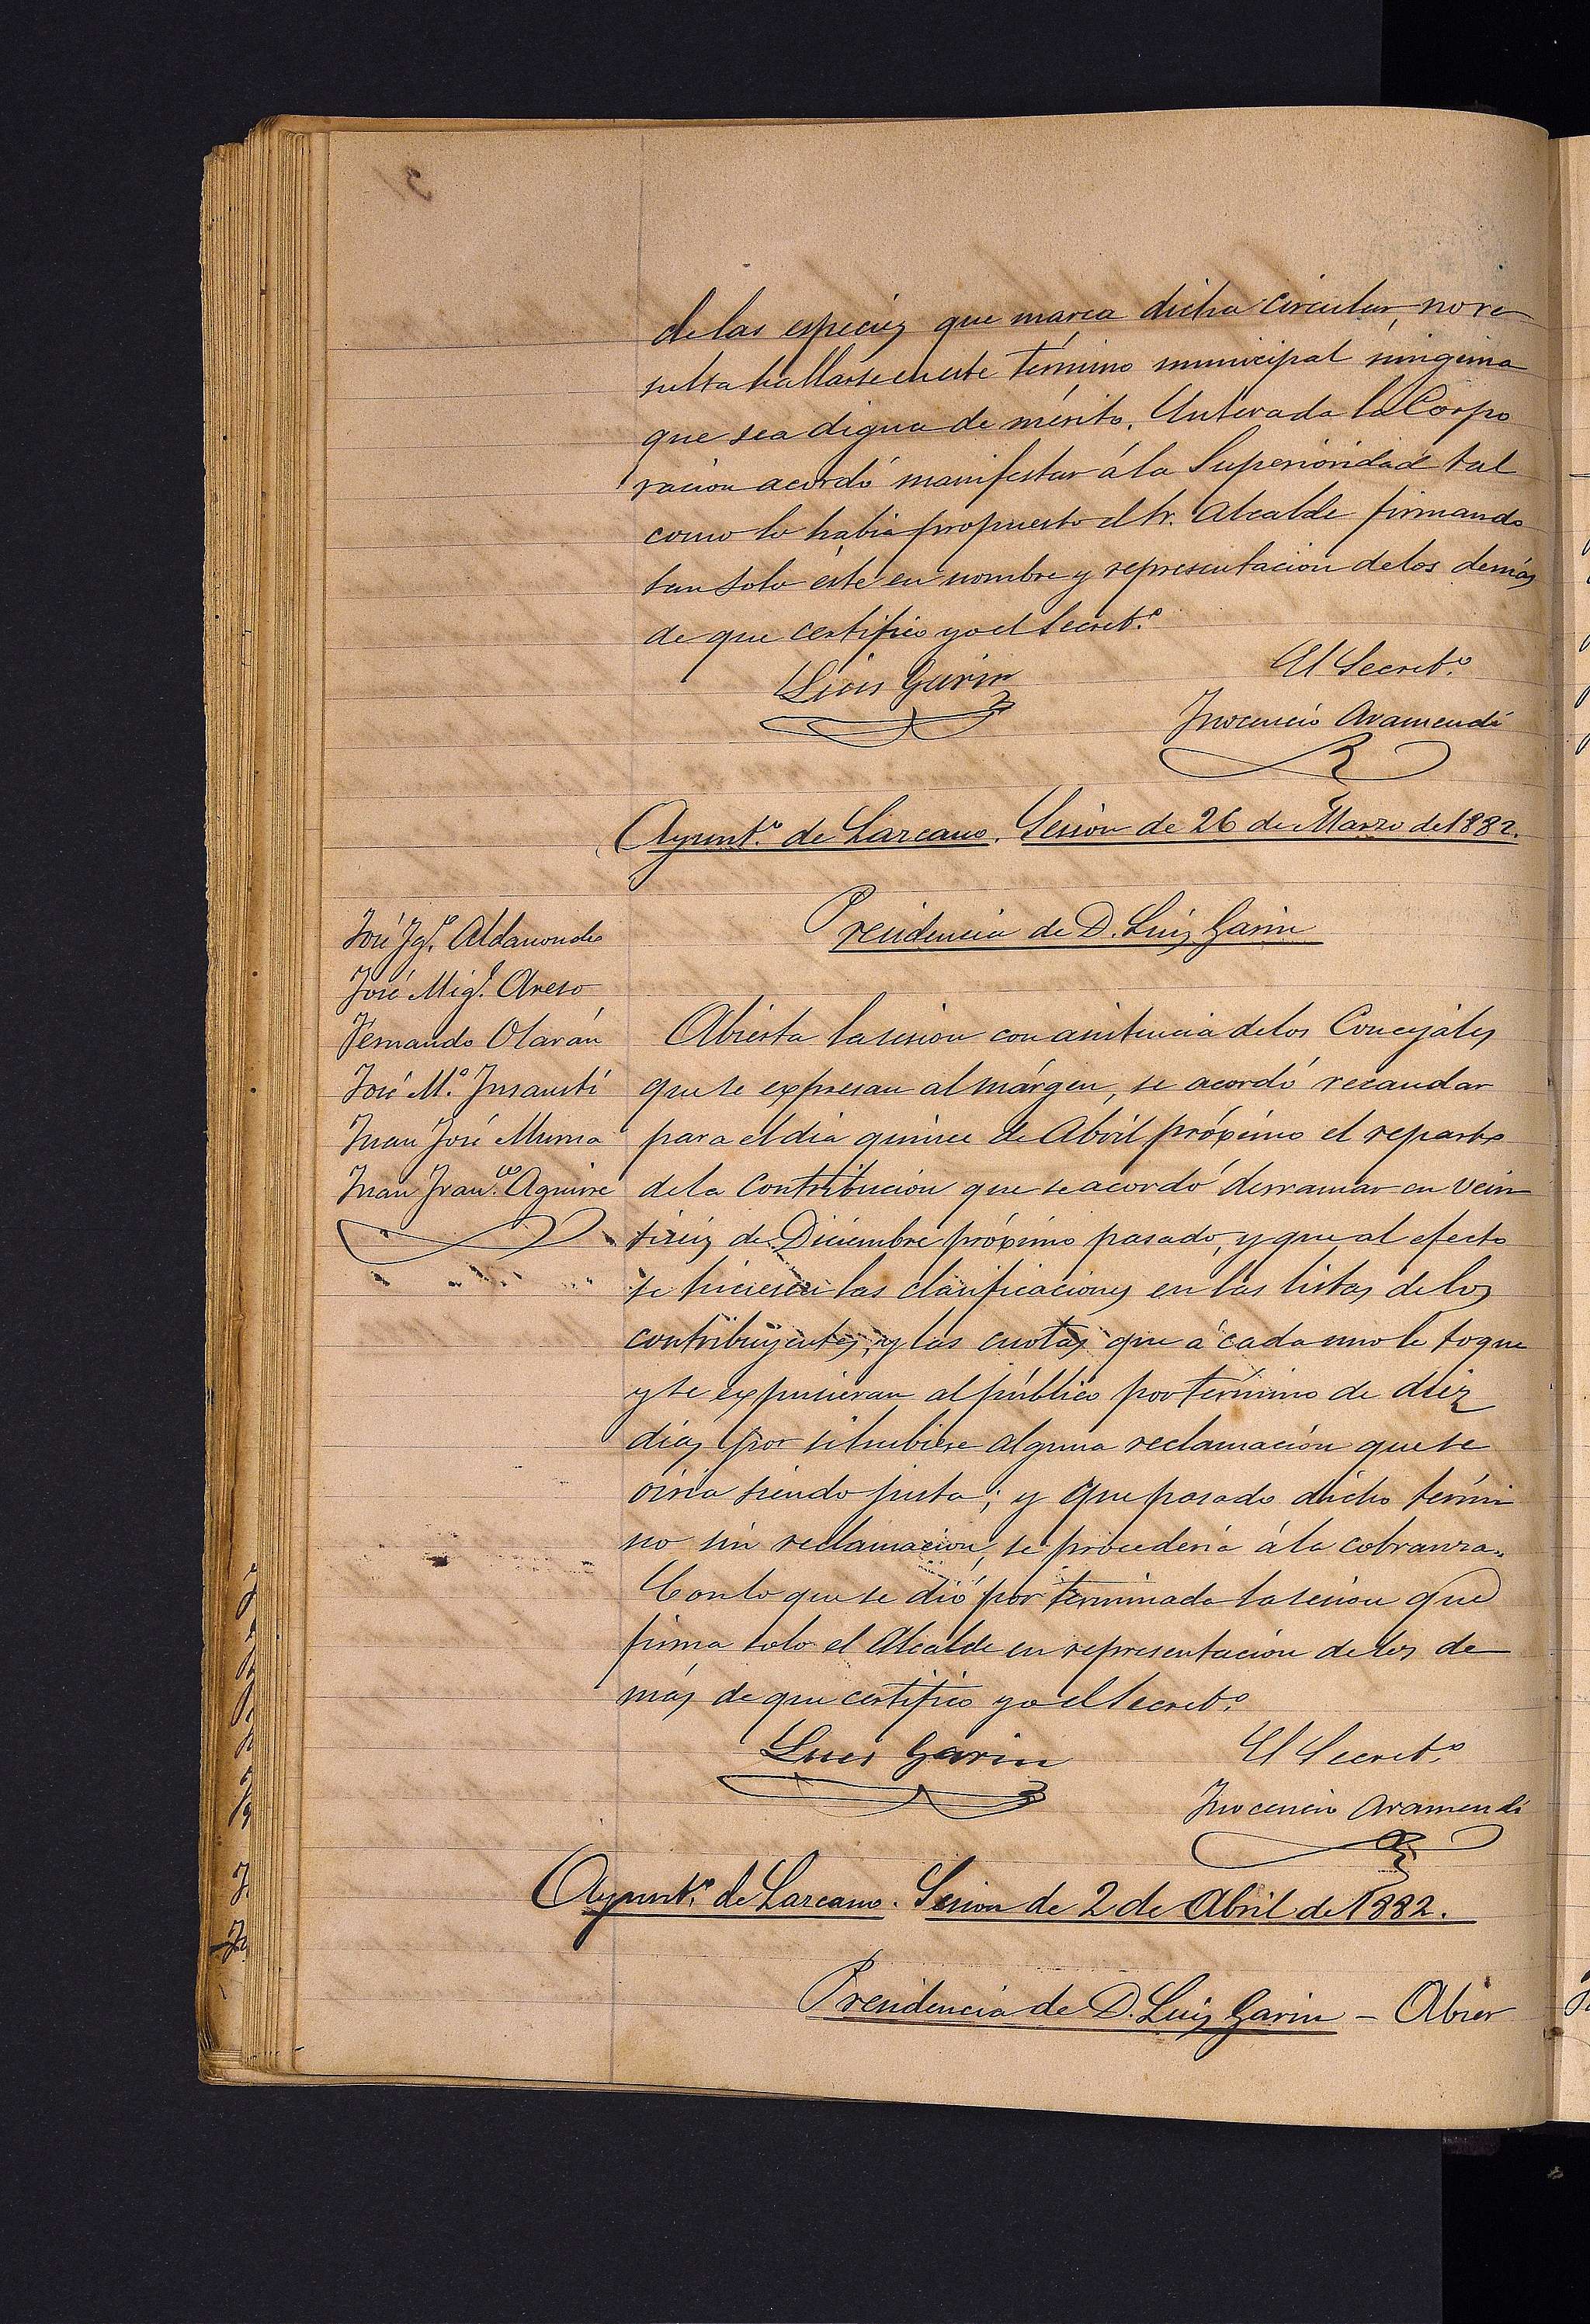 de las especies que marca dicha circular, no re
sulta hallarse en este término municipal ninguna
que sea digna de mérito. Enterada la Corpo
racion acordó manifestar á la Superioridad tal
como lo habia propuesto el Sr. Alcalde firmando
tan solo éste en nombre y representacion de los demás
de que certifico yo el Secret.º
El Secret.º
Luis Garin
Inocencio Aramendi
Ayunt.º de Lazcano. Sesion de 26 de Marzo de 1882.
Presidencia de D. Luis Garin
José Ig.º Aldanondo
José Mig.l Areso
Fernando Olarán
José M.ª Insausti
Juan José Murua
Juan Fran.co Aguirre
Abierta la sesion con asistencia de los Concejales
que se expresan al márgen, se acordó recaudar
para el dia quince de Abril próximo el reparto
de la Contribucion que se acordó derramar en vein
tiseis de Diciembre próximo pasado, y que al efecto
se hiciesen las clasificaciones en las listas de los
contribuyentes, y las cuotas que á cada uno le toque
y se expusieran al público por término de diez
dias por si hubiese alguna reclamación que se
oiria siendo justa; y que pasado dicho térmi
no sin reclamacion, se procederia á la cobranza.
Con lo que se dió por terminada la sesion que
firma solo el Alcalde en representación de los de
más de que certifico yo el Secret.º
Luis Garin
El Secret.º
Inocencio Aramendi
Ayunt.º de Lazcano. Sesion de 2 de Abril de 1882.
Presidencia de D. Luis Garin - Abier